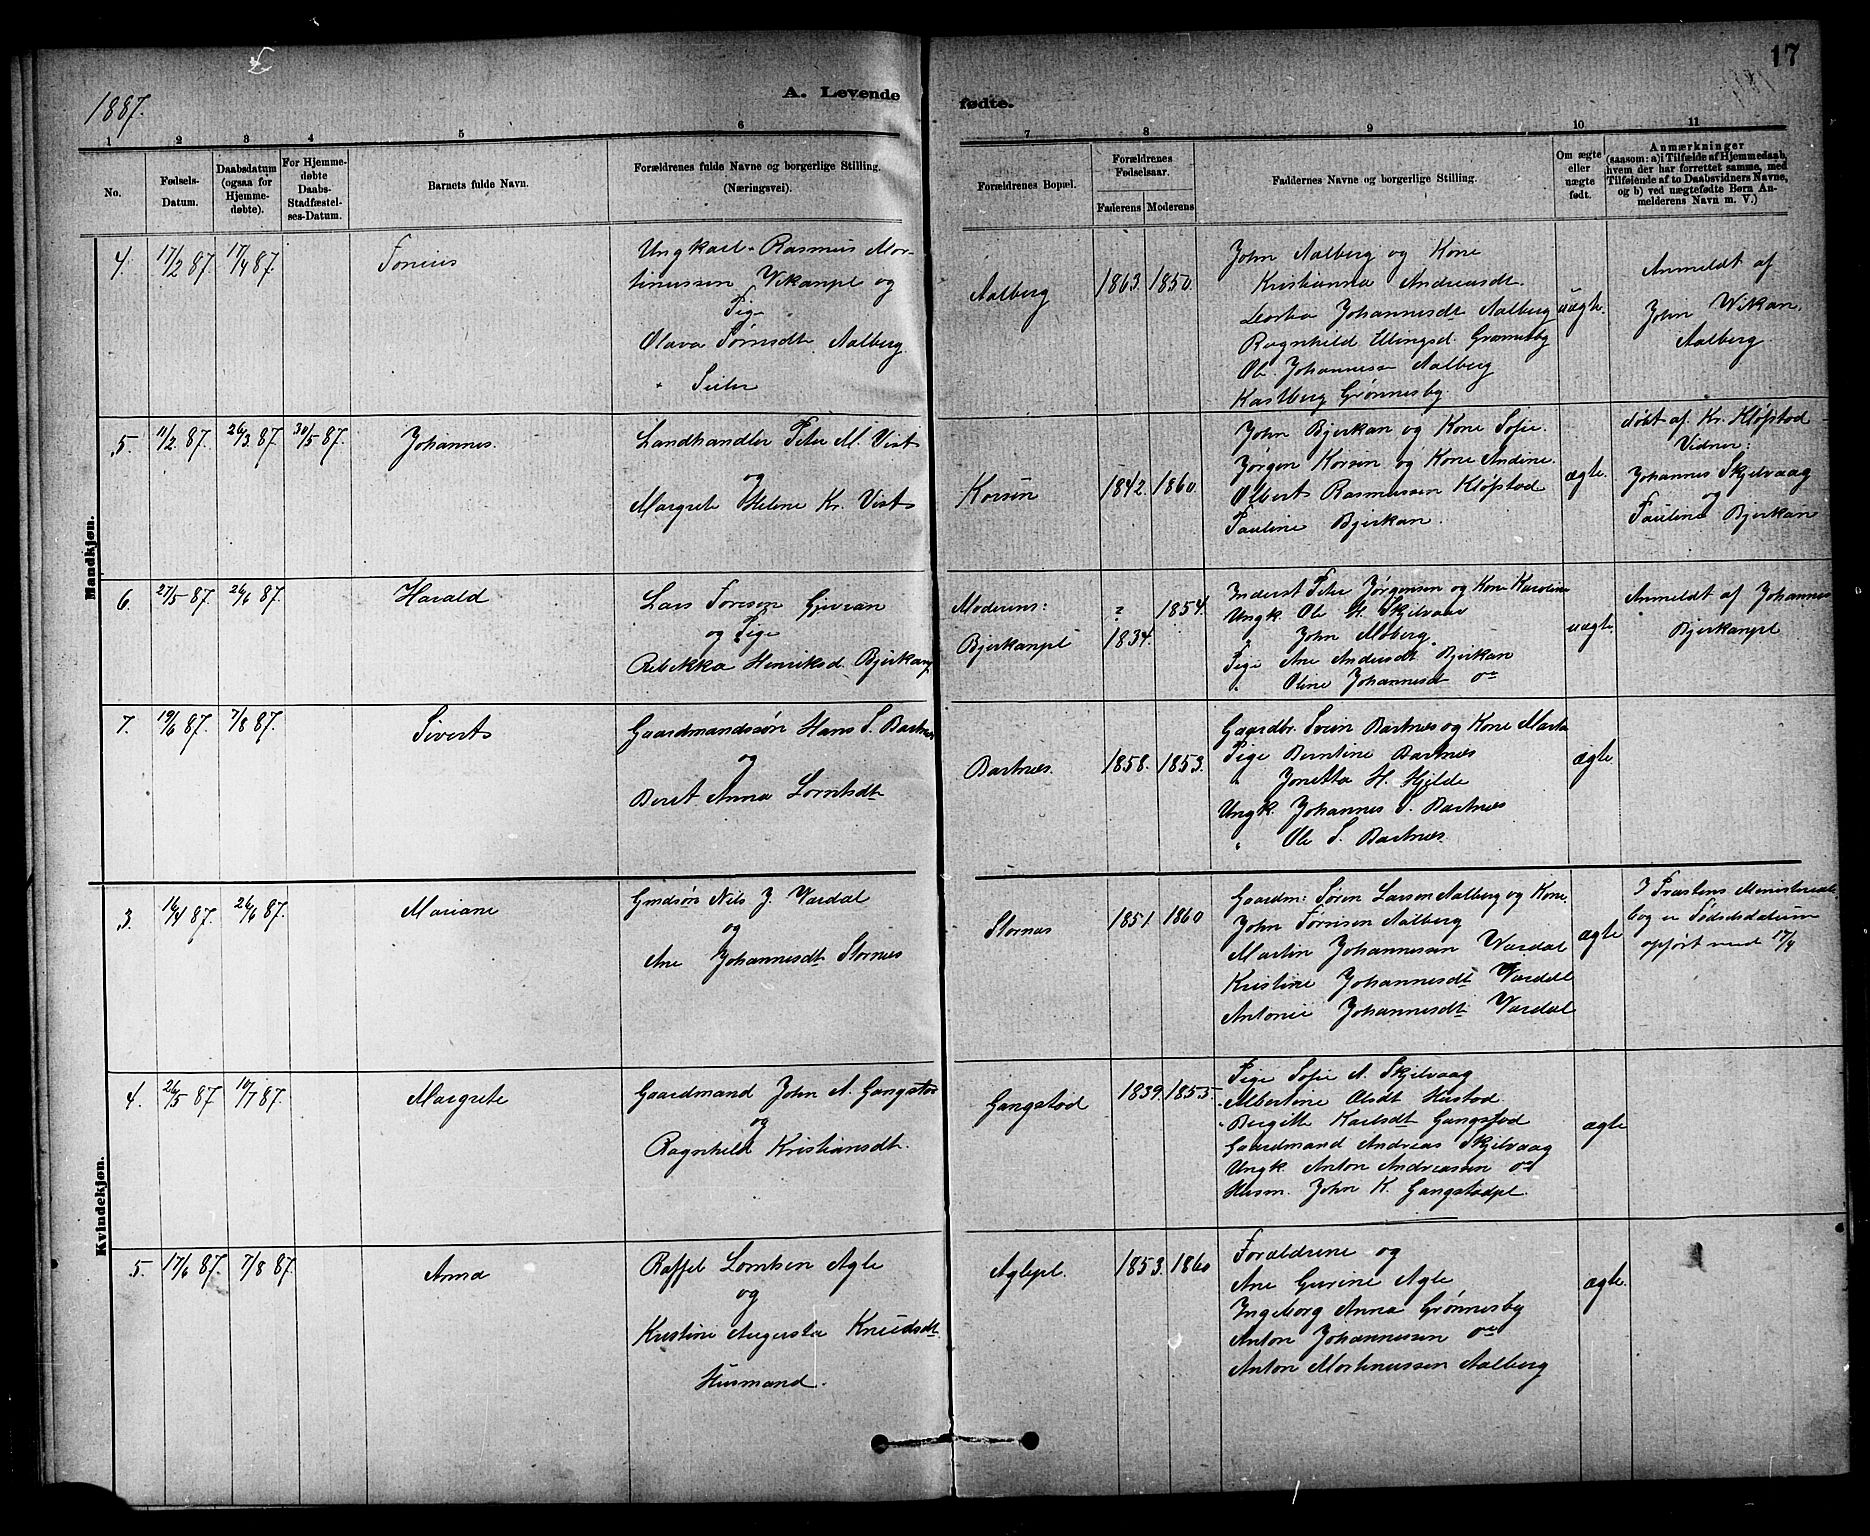 17
1887.
A. Levende
fødte.
1 2 3 4 5 6 7 8 9 10 11
No.
Fødsels-
Datum.
Daabsdatum
(ogsaa for
Hjemme-
døbte).
For Hjemme-
døbte
Daabs-
Stadfæstel-
ses-Datum.
Barnets fulde Navn.
Forældrenes fulde Navne og borgerlige Stilling.
(Næringsvei).
Forældrenes Bopæl.
Forældrenes
Fødselsaar.
Faderens Moderens
Faddernes Navne og borgerlige Stilling.
Om ægte
eller
uægte
født.
Anmærkninger
(saasom: a) i Tilfælde af Hjemmedaab,
hvem der har forrettet samme, med
Tilføiende af to Daabsvidners Navne,
og b) ved uægtefødte Børn An-
melderens Navn m. V.)
Mandkjøn.
4. 17/2 87. 17/4 87.
Ungkarl Rasmus Mor-
tinussen Vikanpl og
Pige
Olava Tørrisdt. Aalberg
Aalberg
1863. 1850.
John Aalberg og Kone
Kristianna Andreasdt
Johannesdt Aalberg
Ragnhild Ellingsd. Grønnesby
Ole Johannessen Aalberg
Kastberg Grønnesby
uægte.
Anmeldt af
John Wikan,
Aalberg.
5. 11/2 87. 26/3 87. 30/5 87.
Johannes.
Landhandler Peter M. Vist
og
Margrete Helene Kr. Vist
Korsen
1842. 1860.
John Bjerkan og Kone Sofie.
Jørgen Korsen og Kone Andine.
Albert Rasmussen Kløpstad
Pauline Bjerkan.
ægte.
døbt af Kr. Kløpstad
Vidner:
Johannes Skjelvaag
og
Pauline Bjerkan
6. 27/5 87. 26/6 87.
Harald
Lars Toresen
og Pige
Rebekka Henriksd. Bjerkanpl
Moderens:
Bjerkanpl
? 1854.
1834.
Inderst Peter Jørgensen og Kone Karoline
Ungk. Ole H. Skjelvaag
" John Moberg.
Pige Ane Andersdt Bjerkan
" Oline Johannesdt do
uægte.
Anmeldt af Johannes
Bjerkanpl
7. 19/6 87. 7/8 87.
Sivert
Gaardmandssøn Hans S. Bartnes
og
Beret Anna Lorntsdt
Bartnes.
1858. 1853.
Gaardbr. Bartnes og Kone Marta
Pige Berntine Bartnes
" Jonetta H. Hjelde
Ungk. Johannes S. Bartnes
" Ole S. Bartnes.
ægte
Kvindekjøn.
3. 16/4 87. 26/6 87.
Mariane
Gmdsøn Nils J. Vardal
og
Ane Johannesdt. Stornes
Stornes
1851. 1860
Gaardm: Søren Larsen Aalberg og Kone.
John Tørrisen Aalberg
Martin Johannessen Wardal
Kristine Johannesdt Wardal
Antonie Johannesdt Vardal
ægte
I Præstens Ministerial-
bog er Fødselsdatum
opført med 17/4
4. 26/5 87 10/7 87.
Margrete
Gaardmand John A. Gangstad
og
Ragnhild Kristiansdt.
Gangstad
1839. 1855.
Pige Sofie A. Skjelvaag
" Albertine Olsdt Hustad
" Bergitte Karlsdt Gangstad
Gaardmand Andreas Skjelvaag
Ungk. Anton Andreassen do
Husm. John K. Gangstadpl.
ægte
5. 17/6 87. 7/8 87.
Anna
Raffel Lorntsen Agle
og
Kristine Augusta Knudsdt.
Husmand.
Aglepl.
1853. 1860
Forældrene og
Ane Gurine Agle
Ingeborg Anna Grønnesby
Anton Johannessen do
Anton Mortinussen Aalberg
ægte.